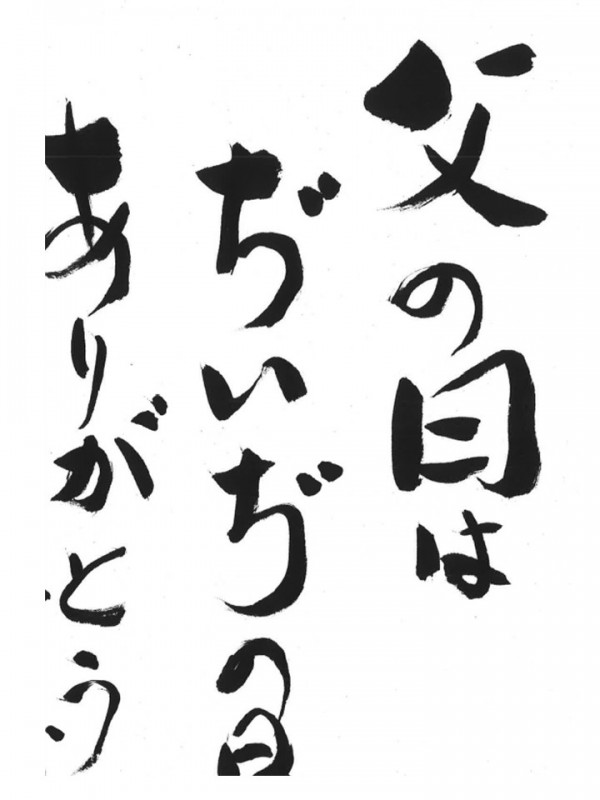 父の日は
ぢいぢの日
ありがとう